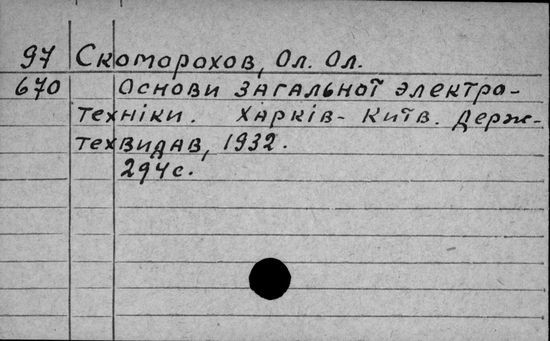 97 Скоморохов, Ол. Ол.
670 Основи загальної электро-
техніки. Харків- Київ. Держ-
техвидав, 1932.
294с.